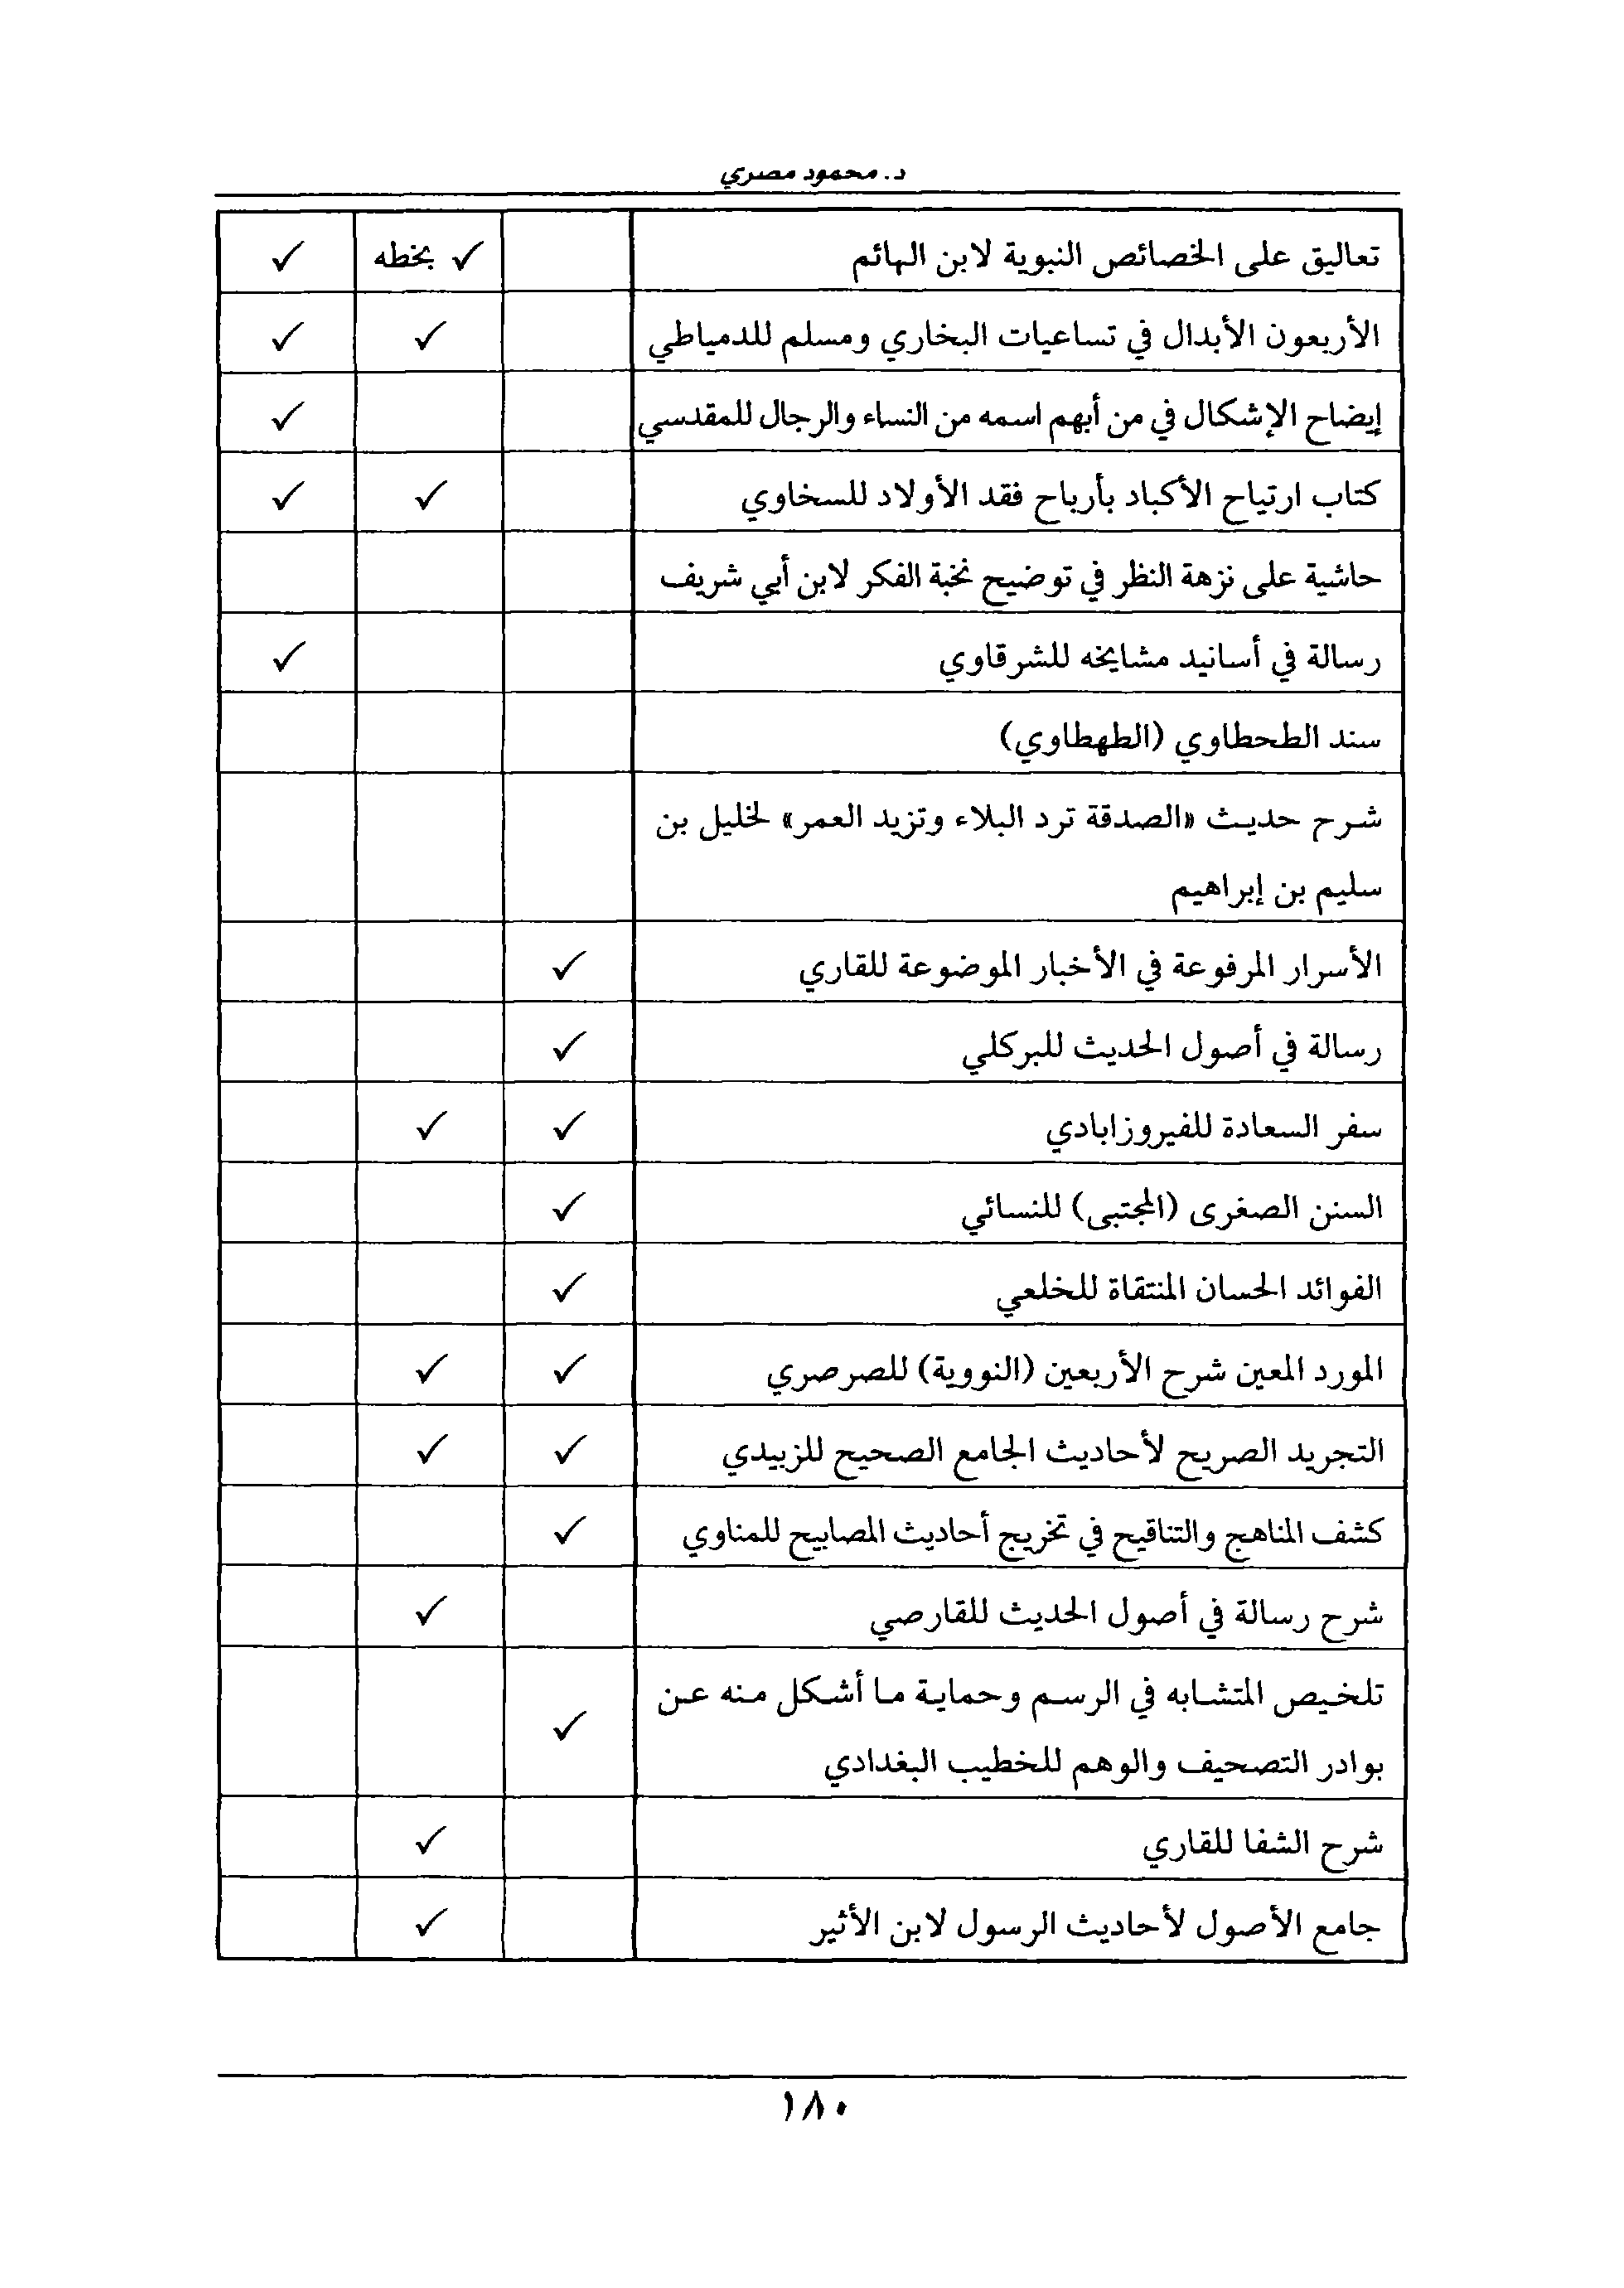 د. محمود مصري
تعاليق على الخصائص النبوية لابن الهائم ✓ بخطه ✓
الأربعون الأبدال في تساعيات البخاري ومسلم للدمياطي ✓ ✓
إيضاح الإشكال في من أبهم اسمه من النساء والرجال للمقدسي ✓
كتاب ارتياح الأكباد بأرباح فقد الأولاد للسخاوي ✓ ✓
حاشية على نزهة النظر في توضيح نخبة الفكر لابن أبي شريف
رسالة في أسانيد مشايخه للشرقاوي ✓
سند الطحطاوي (الطهطاوي)
شرح حديث «الصدقة ترد البلاء وتزيد العمر» لخليل بن
سليم بن إبراهيم
الأسرار المرفوعة في الأخبار الموضوعة للقاري ✓
رسالة في أصول الحديث للبركلي ✓
سفر السعادة للفيروزابادي ✓ ✓
السنن الصغرى (المجتبى) للنسائي ✓
الفوائد الحسان المنتقاة للخلعي ✓
المورد المعين شرح الأربعين (النووية) للصرصري ✓ ✓
التجريد الصريح لأحاديث الجامع الصحيح للزبيدي ✓ ✓
كشف المناهج والتناقيح في تخريج أحاديث المصابيح للمناوي ✓
شرح رسالة في أصول الحديث للقارصي ✓
تلخيص المتشابه في الرسم وحماية ما أشكل منه عن
بوادر التصحيف والوهم للخطيب البغدادي ✓
شرح الشفا للقاري ✓
جامع الأصول لأحاديث الرسول لابن الأثير ✓
١٨٠